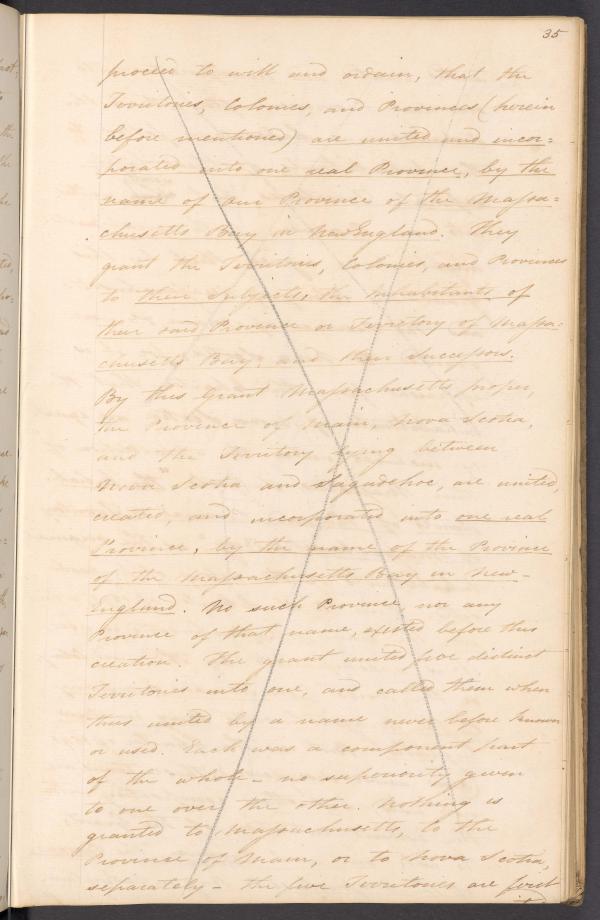 35
proceed to will and ordain, that the
Territories, Colonies, and Provinces (herein
before mentioned) are united and incor=
porated into one real Province, by the
name of our Province of the Massa=
chusetts Bay in NewEngland. They
grant the Territories, Colonies, and Provinces
to their Subjects, the inhabitants of
their said Province or Territory of Massa=
chusetts Bay, and their Successors.
By this Grant Massachusetts proper,
the Province of Main, Nova Scotia,
and the Territory lying between
Nova Scotia and Sagadehoc, are united,
created, and incorporated into one real
Province, by the name of the Province
of the Massachusetts Bay in New-
England. No such Province, nor any
Province of that name, existed before this
creation. The grant united five distinct
Territories into one, and called them when
thus united by a name never before known
or used. Each was a component part
of the whole - no superiority given
to one over the other. Nothing is
granted to Massachusetts, to the
Province of Main, or to Nova Scotia,
separately - the five Territories are first